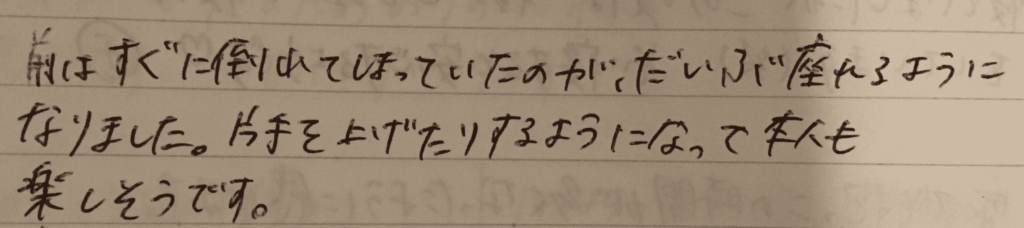 前はすぐに倒れてしまっていたのが、だいぶ座れるように
なりました。片手を上げたりするようになって本人も
楽しそうです。